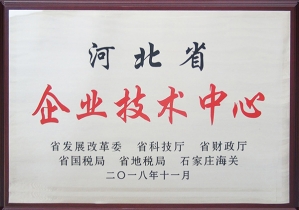 河北省
企业技术中心
省发展改革委 省科技厅 省财政厅
省国税局 省地税局 石家庄海关
二〇一八年十一月